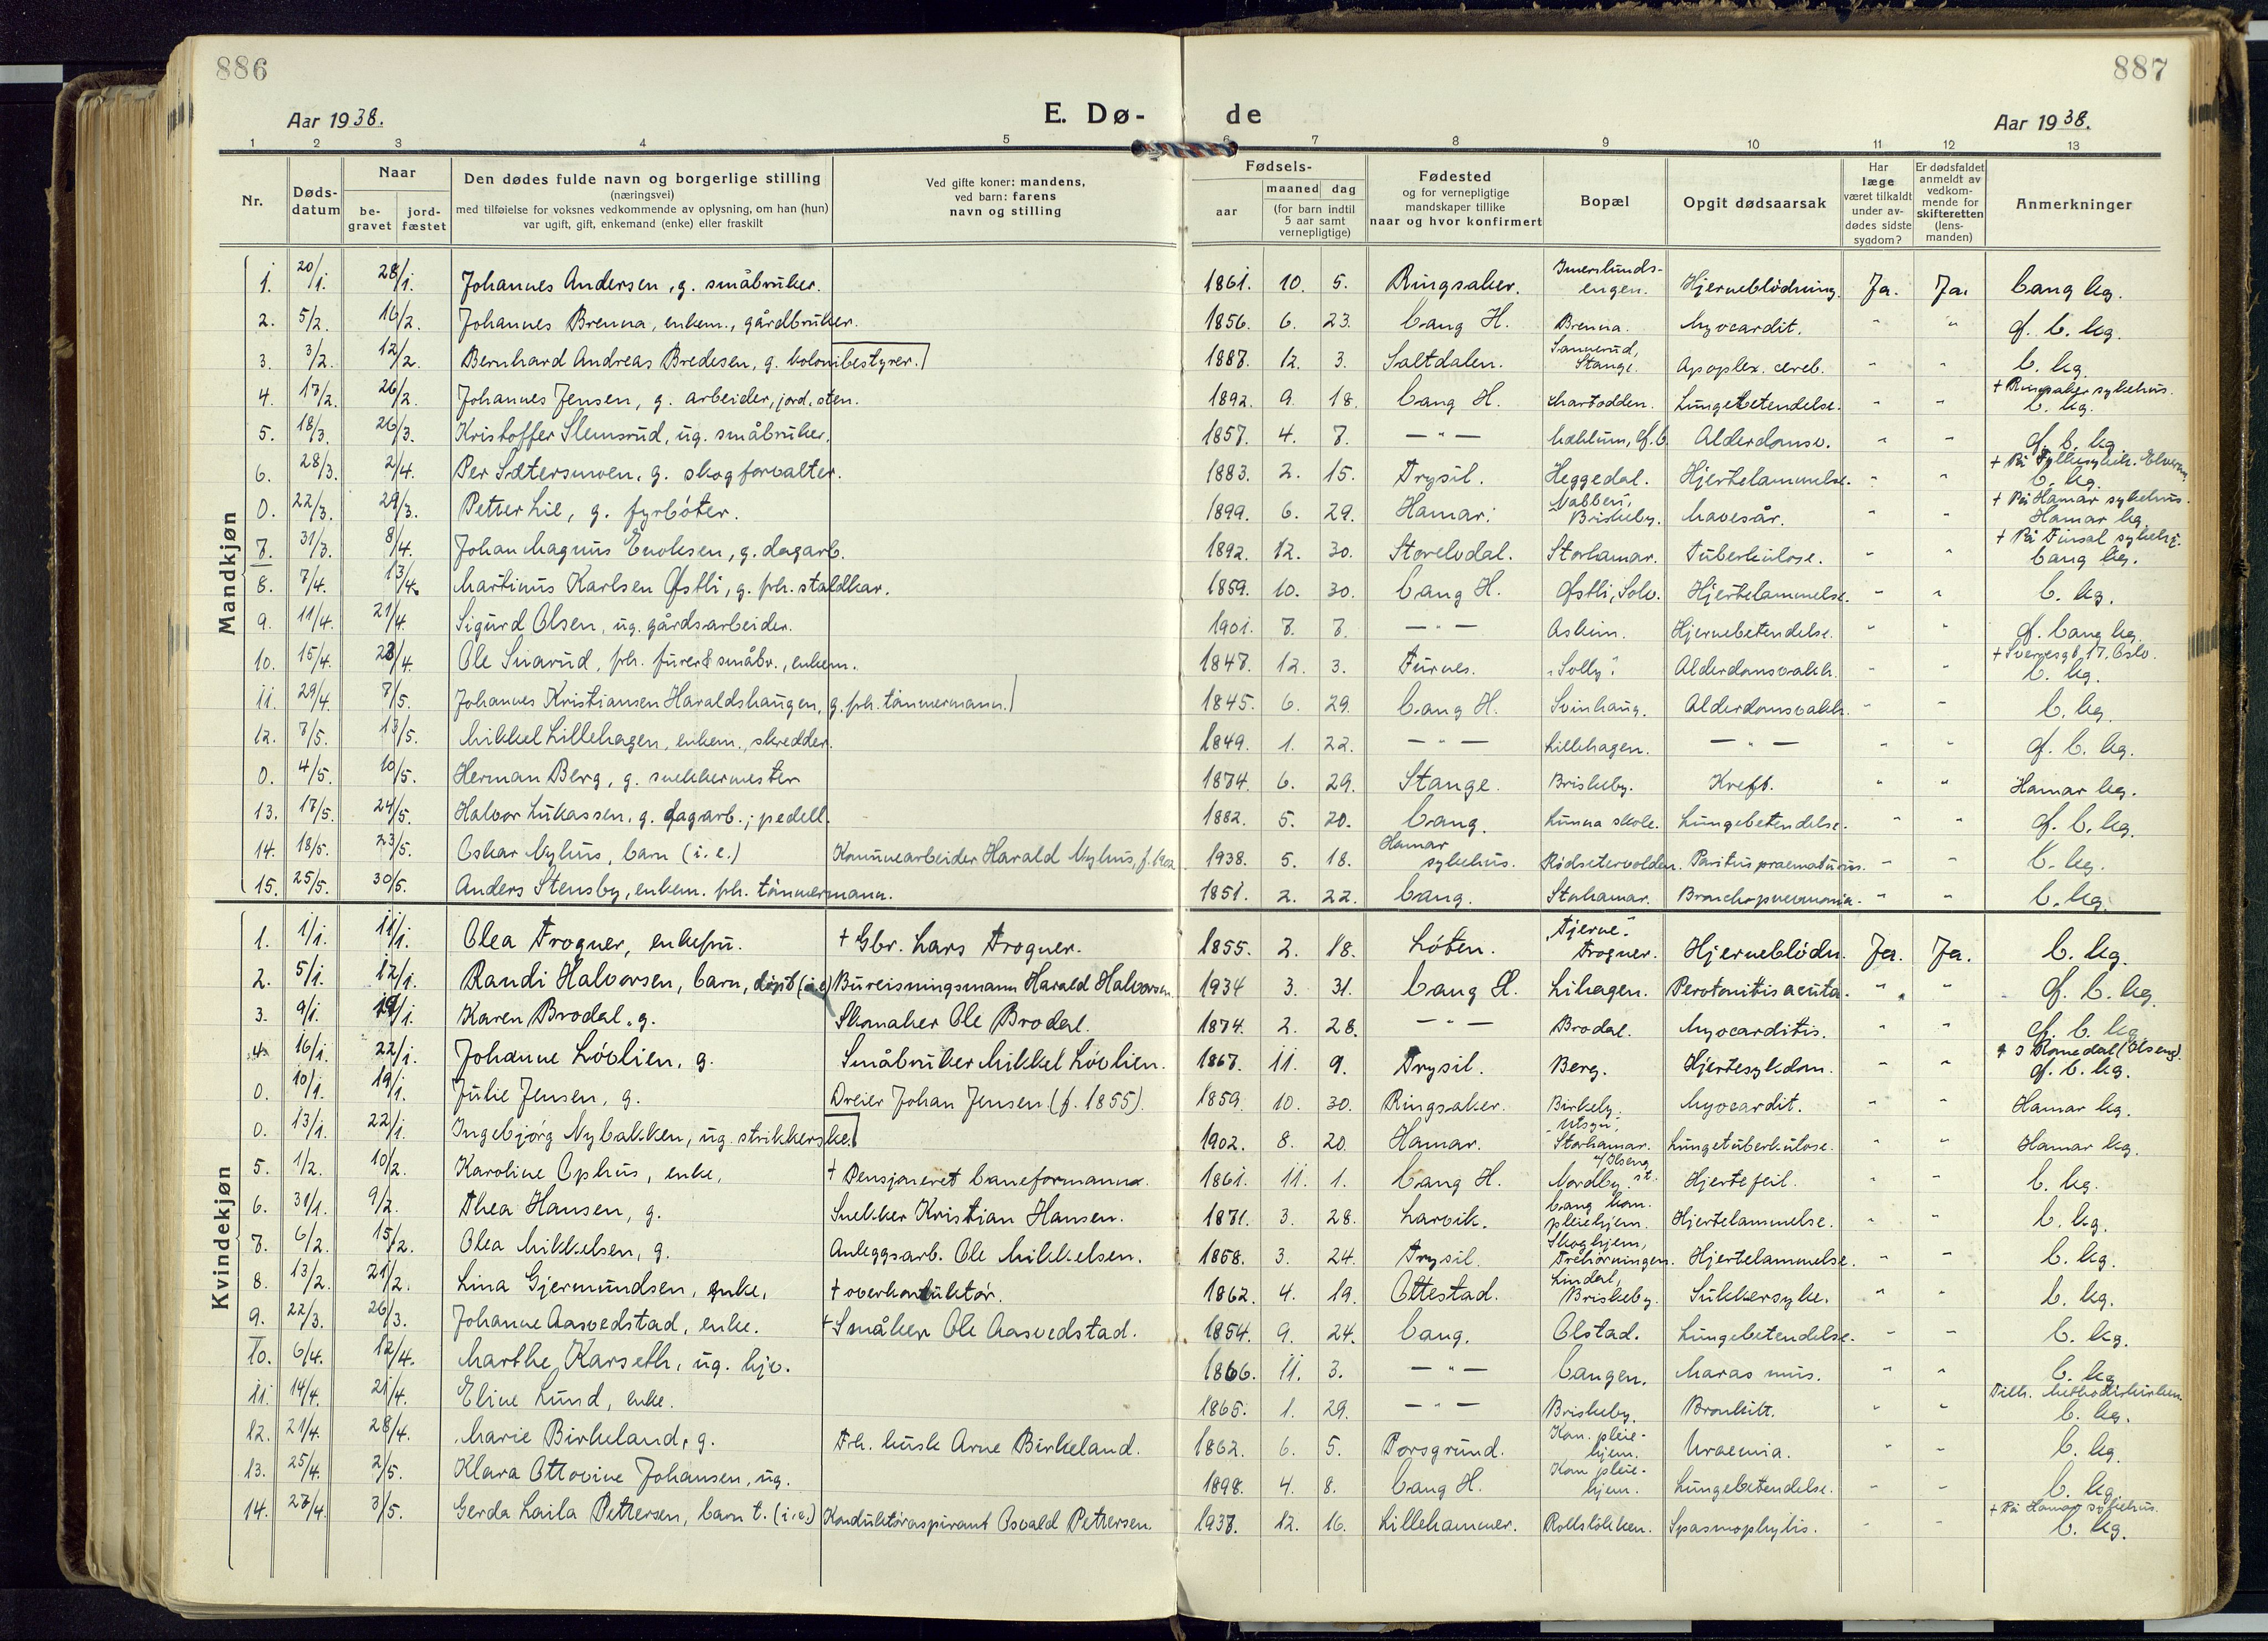 886
887
Aar 1938.
E. Dø-
de
Aar 1938.
1 2 3 4 5 6 7 8 9 10 11 12 13
Nr.
Døds-
datum
Naar
be-
gravet
jord-
fæstet
Den dødes fulde navn og borgerlige stilling
(næringsvei)
med tilføielse for voksnes vedkommende av oplysning, om han (hun)
var ugift, gift, enkemand (enke) eller fraskilt
Ved gifte koner: mandens,
ved barn: farens
navn og stilling
Fødsels-
aar
maaned dag
(for barn indtil
5 aar samt
vernepligtige)
Fødested
og for vernepligtige
mandskaper tillike
naar og hvor konfirmert
Bopæl
Opgit dødsaarsak
Har
læge
været tilkaldt
under av-
dødes sidste
sygdom?
Er dødsfaldet
anmeldt av
vedkom-
mende for
skifteretten
(lens-
manden)
Anmerkninger
Mandkjøn
1. 20/1. 28/1. Johannes Andersen, g. småbruker. 1861. 10. 5. Ringsaker. Imerslunds-engen. Hjerneblødning. Ja. Ja. Vang kg.
2. 5/2. 16/2. Johannes Brenna, enkem., gårdbruker. 1856. 6. 23. Vang H. Brenna. Myocardit. " " Ø. V. kg.
3. 3/2. 12/2. Bernhard Andreas Bredesen, g. kolonibestyrer. 1887. 12. 3. Saltdalen. Sannerud, Stange. Apoplex. cereb. " " V. kg.
4. 17/2. 26/2. Johannes Jensen, g. arbeider, jord, sten. 1892. 9. 18. Vang H. Lungebetendelse. " " + Ringsaker sykehus. V. kg.
5. 18/3. 26/3. Kristoffer Slemsrud, ug. småbruker. 1857. 4. 7. — " — Mælum, Ø.V. Alderdomsv. " " Ø. V. kg.
6. 28/3. 2/4. Per Sætersmoen, g. skogforvalter. 1883. 2. 15. Trysil. Heggedal. Hjertelammelse. " " + På Fylkessykeh. Elverum. V. kg.
0. 22/3. 29/3. Petter Lie, g. fyrbøter. 1899. 6. 29. Hamar. Nabben, Briskeby. Mavesår. " " + På Hamar sykehus. Hamar kg.
7. 31/3. 8/4. Johan Magnus Enoksen, g. dagarb. 1892. 12. 30. Storelvdal. Storhamar. Tuberkulose. " " + På Finsal sykehj. Vang kg.
8. 7/4. 13/4. Martinus Karlsen Østli, g. fhv. staldkar. 1859. 10. 30. Vang H. Østli, Solv. Hjertelammelse. " " V. kg.
9. 11/4. 21/4. Sigurd Olsen, ug. gårdsarbeider. 1901. 7. 7. — " — Askim. Hjernebetendelse. " " Ø. Vang kg.
10. 15/4. 23/4. Ole Snarud, fhv. furer & småbr., enkem. 1847. 12. 3. Furnes. "Solly". Alderdomsvakh. " " + Sverresgt. 17, Oslo. V. kg.
11. 29/4. 7/5. Johannes Kristiansen Haraldshaugen, g. fhv. tømmermann. 1845. 6. 29. Vang H. Svinhaug. Alderdomsvakh. " " V. kg.
12. 7/5. 13/5. Mikkel Lillehagen, enkem., skredder. 1849. 1. 22. — " — Lillehagen. — " — " " Ø. V. kg.
0. 4/5. 10/5. Herman Berg, g. snekkermester 1874. 6. 29. Stange. Briskeby. Kreft. " " Hamar kg.
13. 17/5. 24/5. Halvor Lukassen, g. dagarb.; pedell. 1882. 5. 20. Vang. Lunna skole. Lungebetendelse. " " Ø. V. kg.
14. 18/5. 23/5. Oskar Nyhus, barn (i. e.) Kommunearbeider Harald Nyhus, 1938. 5. 18. Hamar sykehus. Rødsetervolden. Partus praematurus. " " V. kg.
15. 25/5. 30/5. Anders Stensby, enkem. fhv. tømmermann. 1851. 2. 22. Vang. Storhamar. Bronchopneumonia. " " V. kg.
Kvindekjøn
1. 1/1. 11/1. Olea Frogner, enkefru. + Gbr. Lars Frogner. 1855. 2. 18. Løten. "Tjerne" Frogner. Hjerneblødn. Ja. Ja. V. kg.
2. 5/1. 12/1. Randi Halvorsen, barn, døpt (i.e) Bureisningsmann Harald Halvorsen 1934 3. 31. Vang H. Lihagen. Perotonitis acuta. " " Ø. V. kg.
3. 9/1. 19/1. Karen Brodal, g. Skomaker Ole Brodal. 1874. 2. 28. — " — Brodal. Myocarditis. " " Ø. V. kg.
4. 16/1. 22/1. Johanne Løvlien, g. Småbruker Mikkel Løvlien. 1867. 11. 9. Trysil. Berg. Hjertesykdom. " " + i Romedal (Ilseng). Ø. V. kg.
0. 10/1. 19/1. Julie Jensen, g. Dreier Johan Jensen (f. 1855). 1859. 10. 30. Ringsaker. Birkely. Myocardit. " " Hamar kg.
0. 13/1. 22/1. Ingebjørg Nybakken, ug. strikkerske. 1902. 8. 20. Hamar. "Utsyn", Storhamar. Lungetuberkulose. " " Hamar kg.
5. 1/2. 10/2. Karoline Ophus, enke, + Pensjoneret baneformann. 1861. 11. 1. Vang H. Nordby. v/ Ilseng st. Hjertefeil. " " V. kg.
6. 31/1. 9/2. Thea Hansen, g. Snekker Kristian Hansen. 1871. 3. 28. Larvik. Vang kom. pleiehjem. Hjertelammelse. " " V. kg.
7. 6/2. 15/2. Olea Mikkelsen, g. Anleggsarb. Ole Mikkelsen. 1868. 3. 24. Trysil. Skoghjem, Trehørningen. Hjertelammelse. " " V. kg.
8. 13/2. 21/2. Lina Gjermundsen, enke, + overkonduktør. 1862. 4. 19. Ottestad. Lindal, Briskeby. Sukkersyke. " " V. kg.
9. 22/3. 26/3. Johanne Aasvedstad, enke. + Småbr Ole Aasvedstad. 1854. 9. 24. Vang. Olstad. Lungebetendelse. " " V. kg.
10. 6/4. 12/4. Marthe Karseth, ug. hjv. 1866. 11. 3. — " — Vangen. Maras mus. " " V. kg.
11. 14/4. 21/4. Eline Lund, enke. 1865. 1. 29. — " — Briskeby. Bronkitt. " " Tilh. Methodistkirken. V. kg.
12. 21/4. 28/4. Marie Birkeland, g. Fh. husk Arne Birkeland. 1862. 6. 5. Porsgrund. Kom. pleie-hjem. Uraemia. " " V. kg.
13. 25/4. 2/5. Klara Ottovine Johansen, ug. 1898. 4. 8. Vang H. Kom pleie-hjem. Lungebetendelse. " " V. kg.
14. 27/4. 3/5. Gerda Laila Pettersen, barn t. (i.e.) Konduktøraspirant Osvald Pettersen. 1937. 12. 16. Lillehammer. Rollsløkken. Spasmophylis. " " + På Hamar sykehus. V. kg.